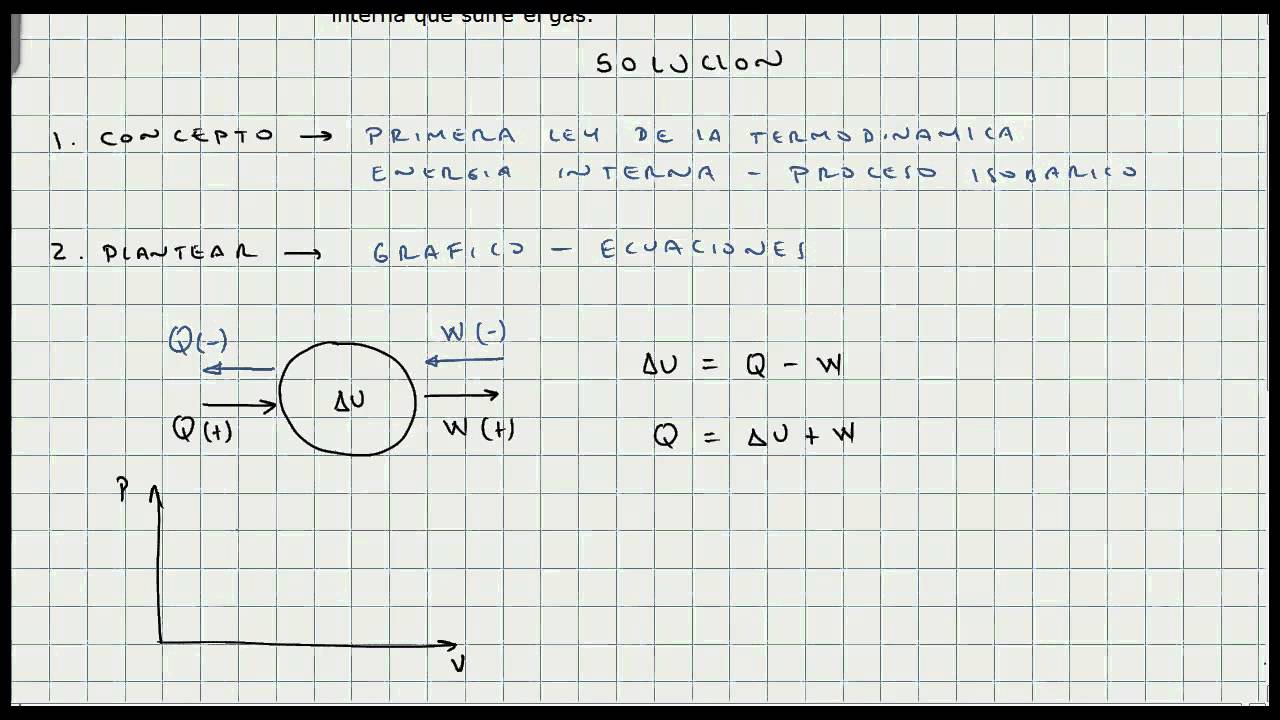 interna que sufre el gas.
SOLUCION
1. CONCEPTO → PRIMERA LEY DE LA TERMODINAMICA
ENERGIA INTERNA - PROCESO ISOBARICO
2. PLANTEAR → GRAFICO - ECUACIONES
Q(-)
W(-)
ΔU
Q(+)
W(+)
ΔU = Q - W
Q = ΔU + W
P
V